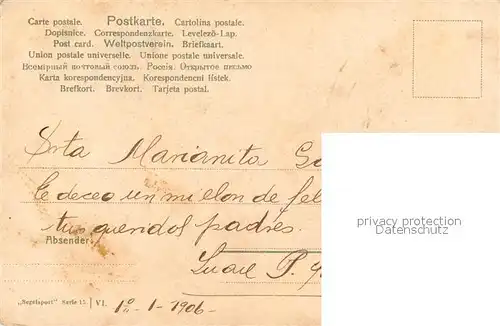 Carte postale. Postkarte. Cartolina postale.
Dopisnice. Correspondenzkarte. Levelező-Lap.
Post card. Weltpostverein. Briefkaart.
Union postale universelle. Unione postale universale.
Всемірный почтовый союзъ. Россія. Открытое письмо
Karta korespondencyjna. Korespondencni listek.
Brefkort. Brevkort. Tarjeta postal.
Srta Marianita
privacy protection
le deceo un millon de fel
Datenschutz
tus queridos padres.
Absender:
„Segelsport" Serie 15. VI.
1º - 1 - 1906 -